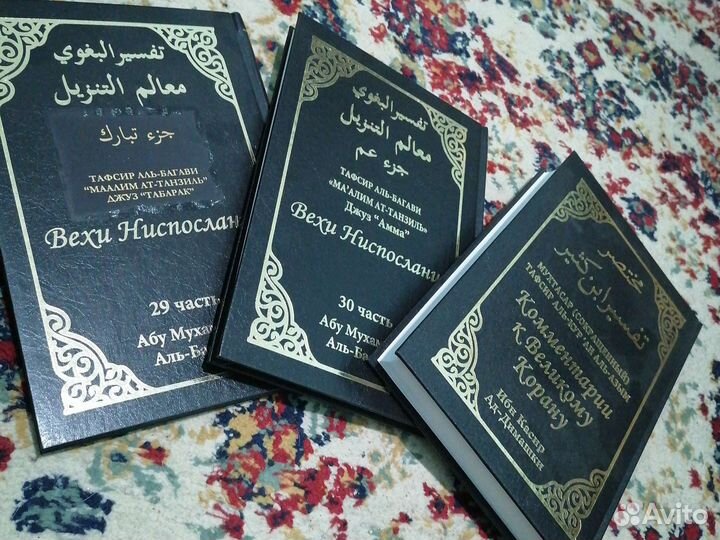 تفسير البغوي
معالم التنزيل
جزء تبارك
ТАФСИР АЛЬ-БАГАВИ
"МААЛИМ АТ-ТАНЗИЛЬ"
ДЖУЗ "ТАБАРАК"
Вехи Ниспослани
29 часть
Абу Мухам
Аль-Ба
تفسير البغوي
معالم التنزيل
جزء عم
ТАФСИР АЛЬ-БАГАВИ
«МА'АЛИМ АТ-ТАНЗИЛЬ»
Джуз "Амма"
Вехи Ниспослани
30 часть
Абу Мухам
Аль-Ба
مختصر
تفسير ابن كثير
МУХТАСАР (СОКРАЩЕННЫЙ)
ТАФСИР АЛЬ-КУР'АН АЛЬ-АЗЫМ
Комментарии
к Великому
Корану
Ибн Касир
Ад-Димашки
Avito